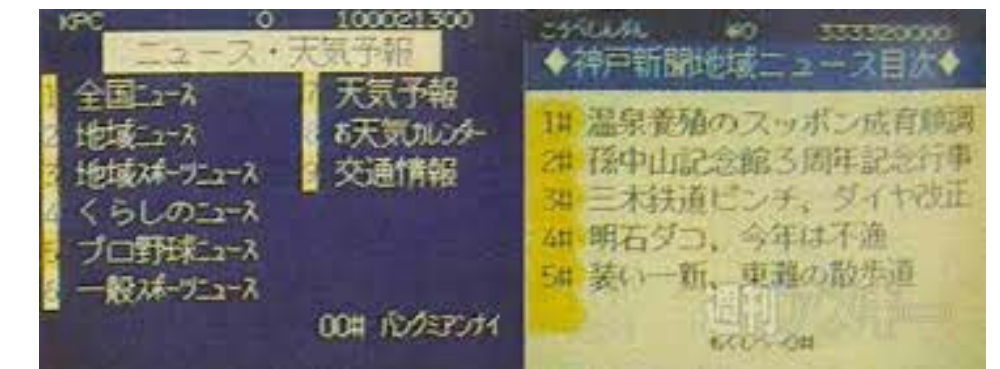 KPC 0 100021300
ニュース・天気予報
1 全国ニュース
2 地域ニュース
3 地域スポーツニュース
4 くらしのニュース
5 プロ野球ニュース
6 一般スポーツニュース
7 天気予報
8 お天気カレンダー
9 交通情報
00# バングミアンナイ
こうべしんぶん ¥0 333320000
◆神戸新聞地域ニュース目次◆
1# 温泉養殖のスッポン成育順調
2# 孫中山記念館3周年記念行事
3# 三木鉄道ピンチ、ダイヤ改正
4# 明石ダコ、今年は不漁
5# 装い一新、東灘の散歩道
週刊アスキー
もくじへ…0#